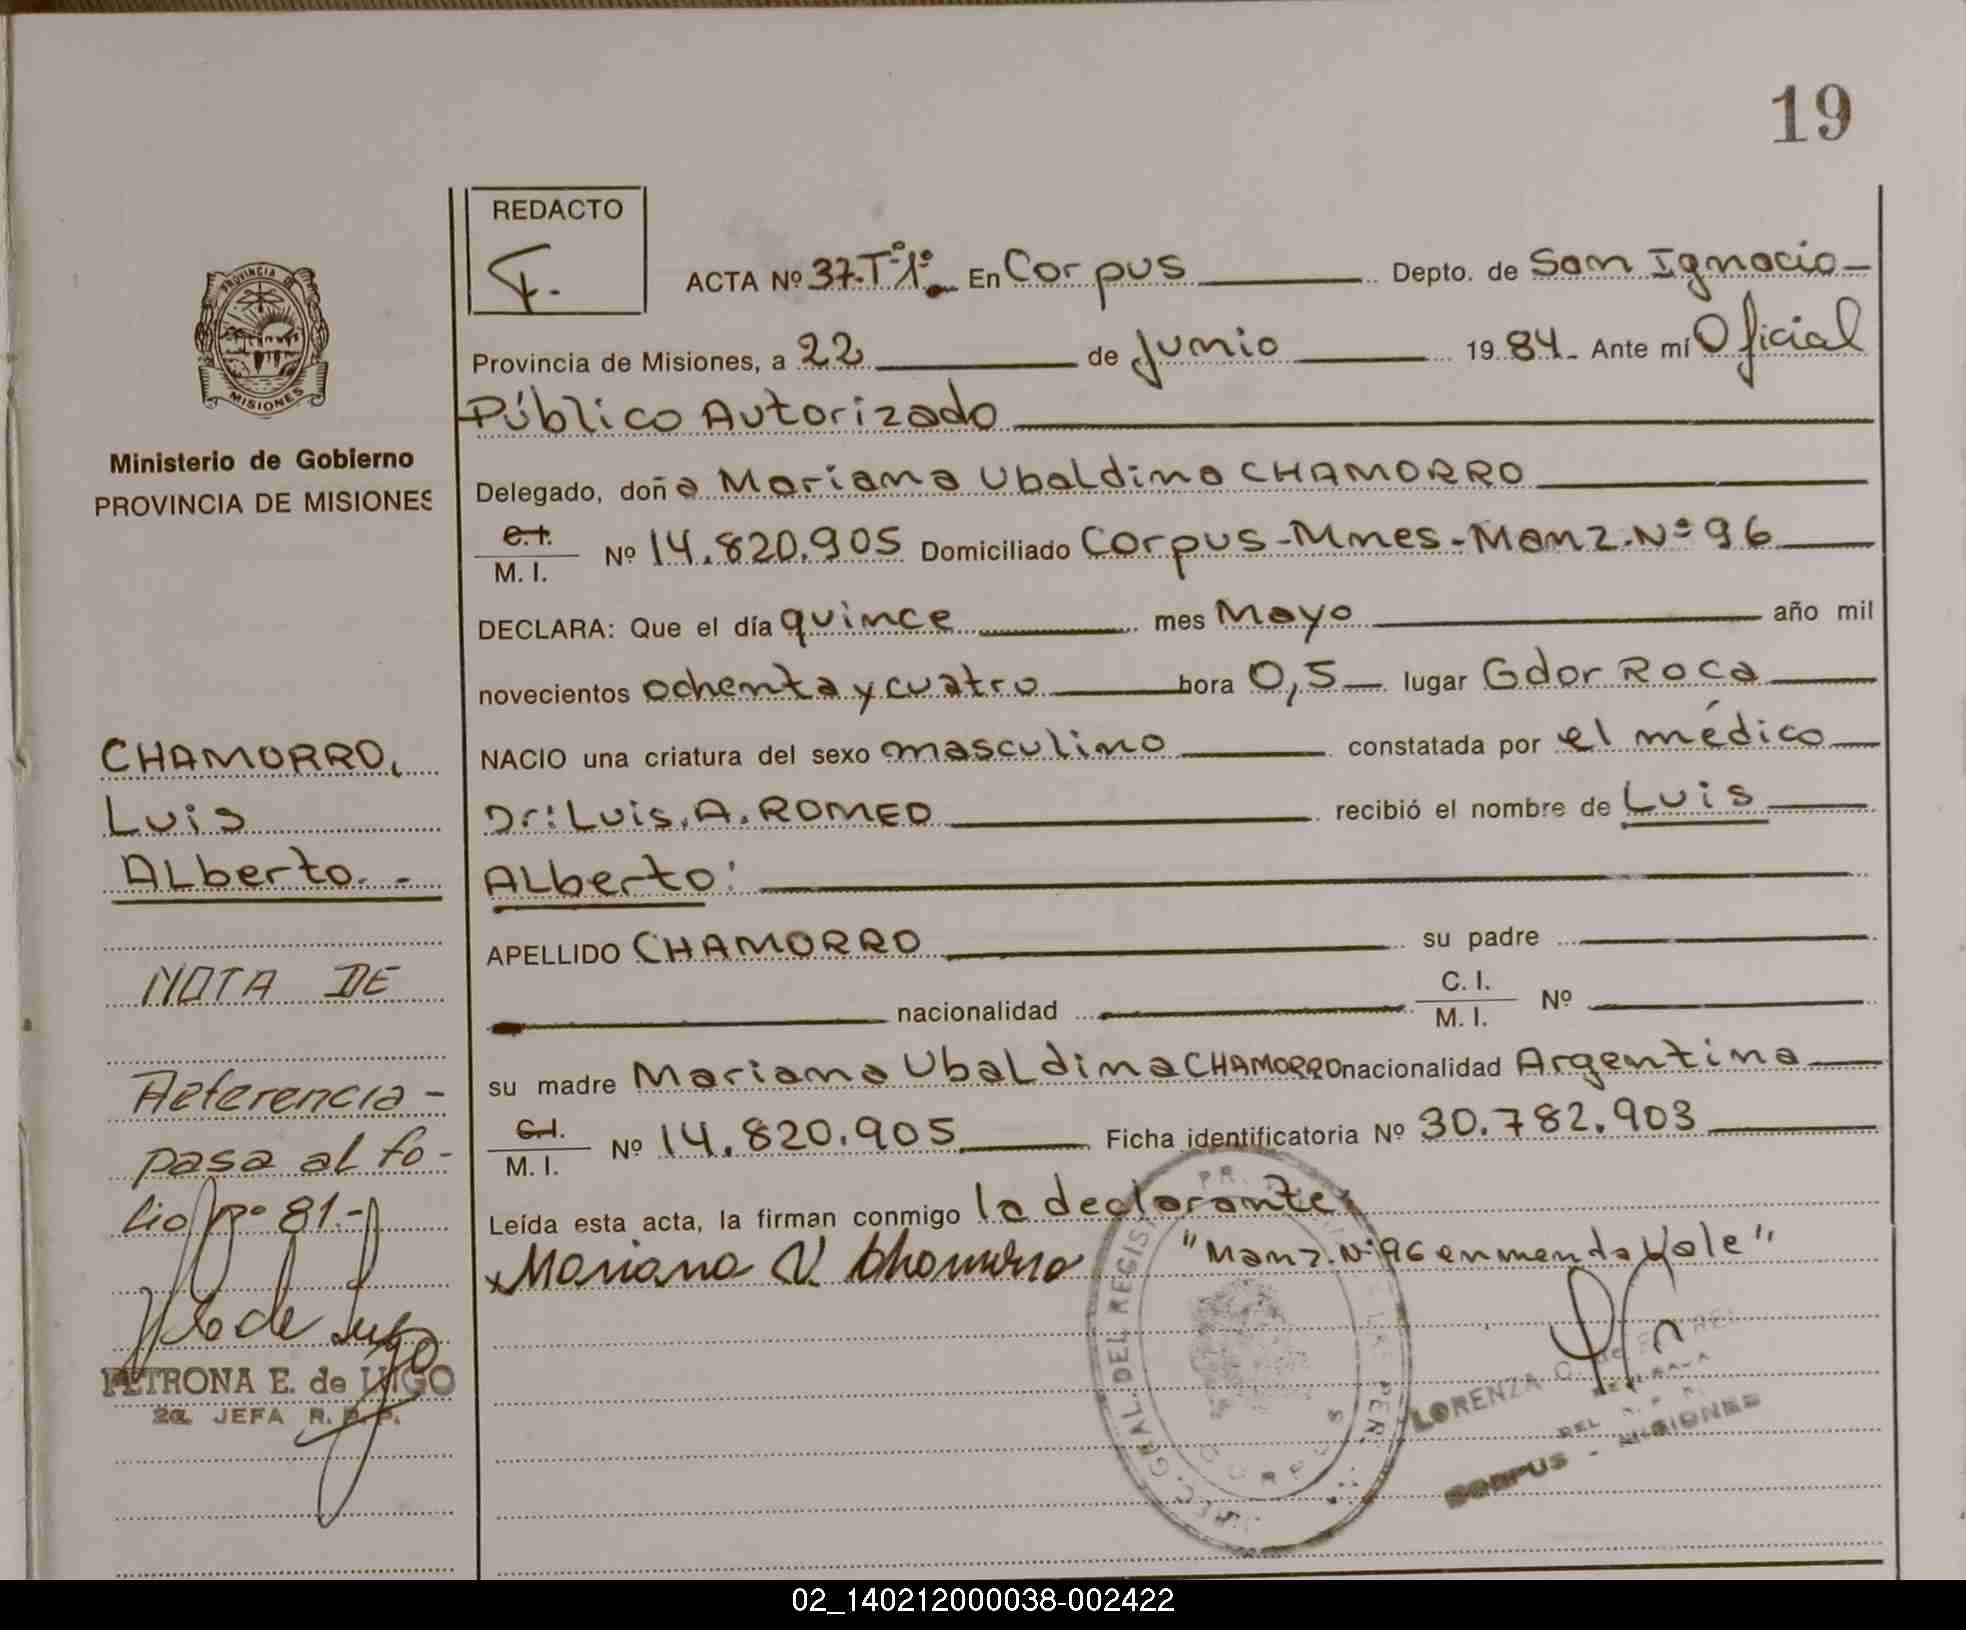 19
REDACTO
ACTA Nº 37.Tº1º. En Corpus Depto. de San Ignacio
Provincia de Misiones, a 22 de Junio 19 84. Ante mí Oficial
Público Autorizado
Delegado, doña Mariana Ubaldina CHAMORRO
C.I. / M. I. Nº 14.820.905 Domiciliado Corpus-Mnes-Manz.Nº 96
DECLARA: Que el día quince mes Mayo año mil
novecientos ochenta y cuatro hora 0,5 lugar Gdor Roca
NACIO una criatura del sexo masculino constatada por el médico
Dr: Luis.A.ROMEO recibió el nombre de Luis
ALberto:
APELLIDO CHAMORRO su padre
nacionalidad C. I. / M. I. Nº
su madre Mariana Ubaldina CHAMORRO nacionalidad Argentina
C.I. / M. I. Nº 14.820.905 Ficha identificatoria Nº 30.782.903
Leída esta acta, la firman conmigo la declarante
Mariana U. Chamorro "Manz.Nº96 enmenda Vale"
PROVINCIA DE
MISIONES
Ministerio de Gobierno
PROVINCIA DE MISIONES
CHAMORRO,
Luis
ALberto.-
NOTA DE
Referencia-
pasa al fo-
lio nº 81.-
PETRONA E. de LUGO
2a. JEFA R.P.P.
GRAL. DEL REGIS
CORPUS
LORENZA C. de
DEL
CORPUS - MISIONES
02_140212000038-002422